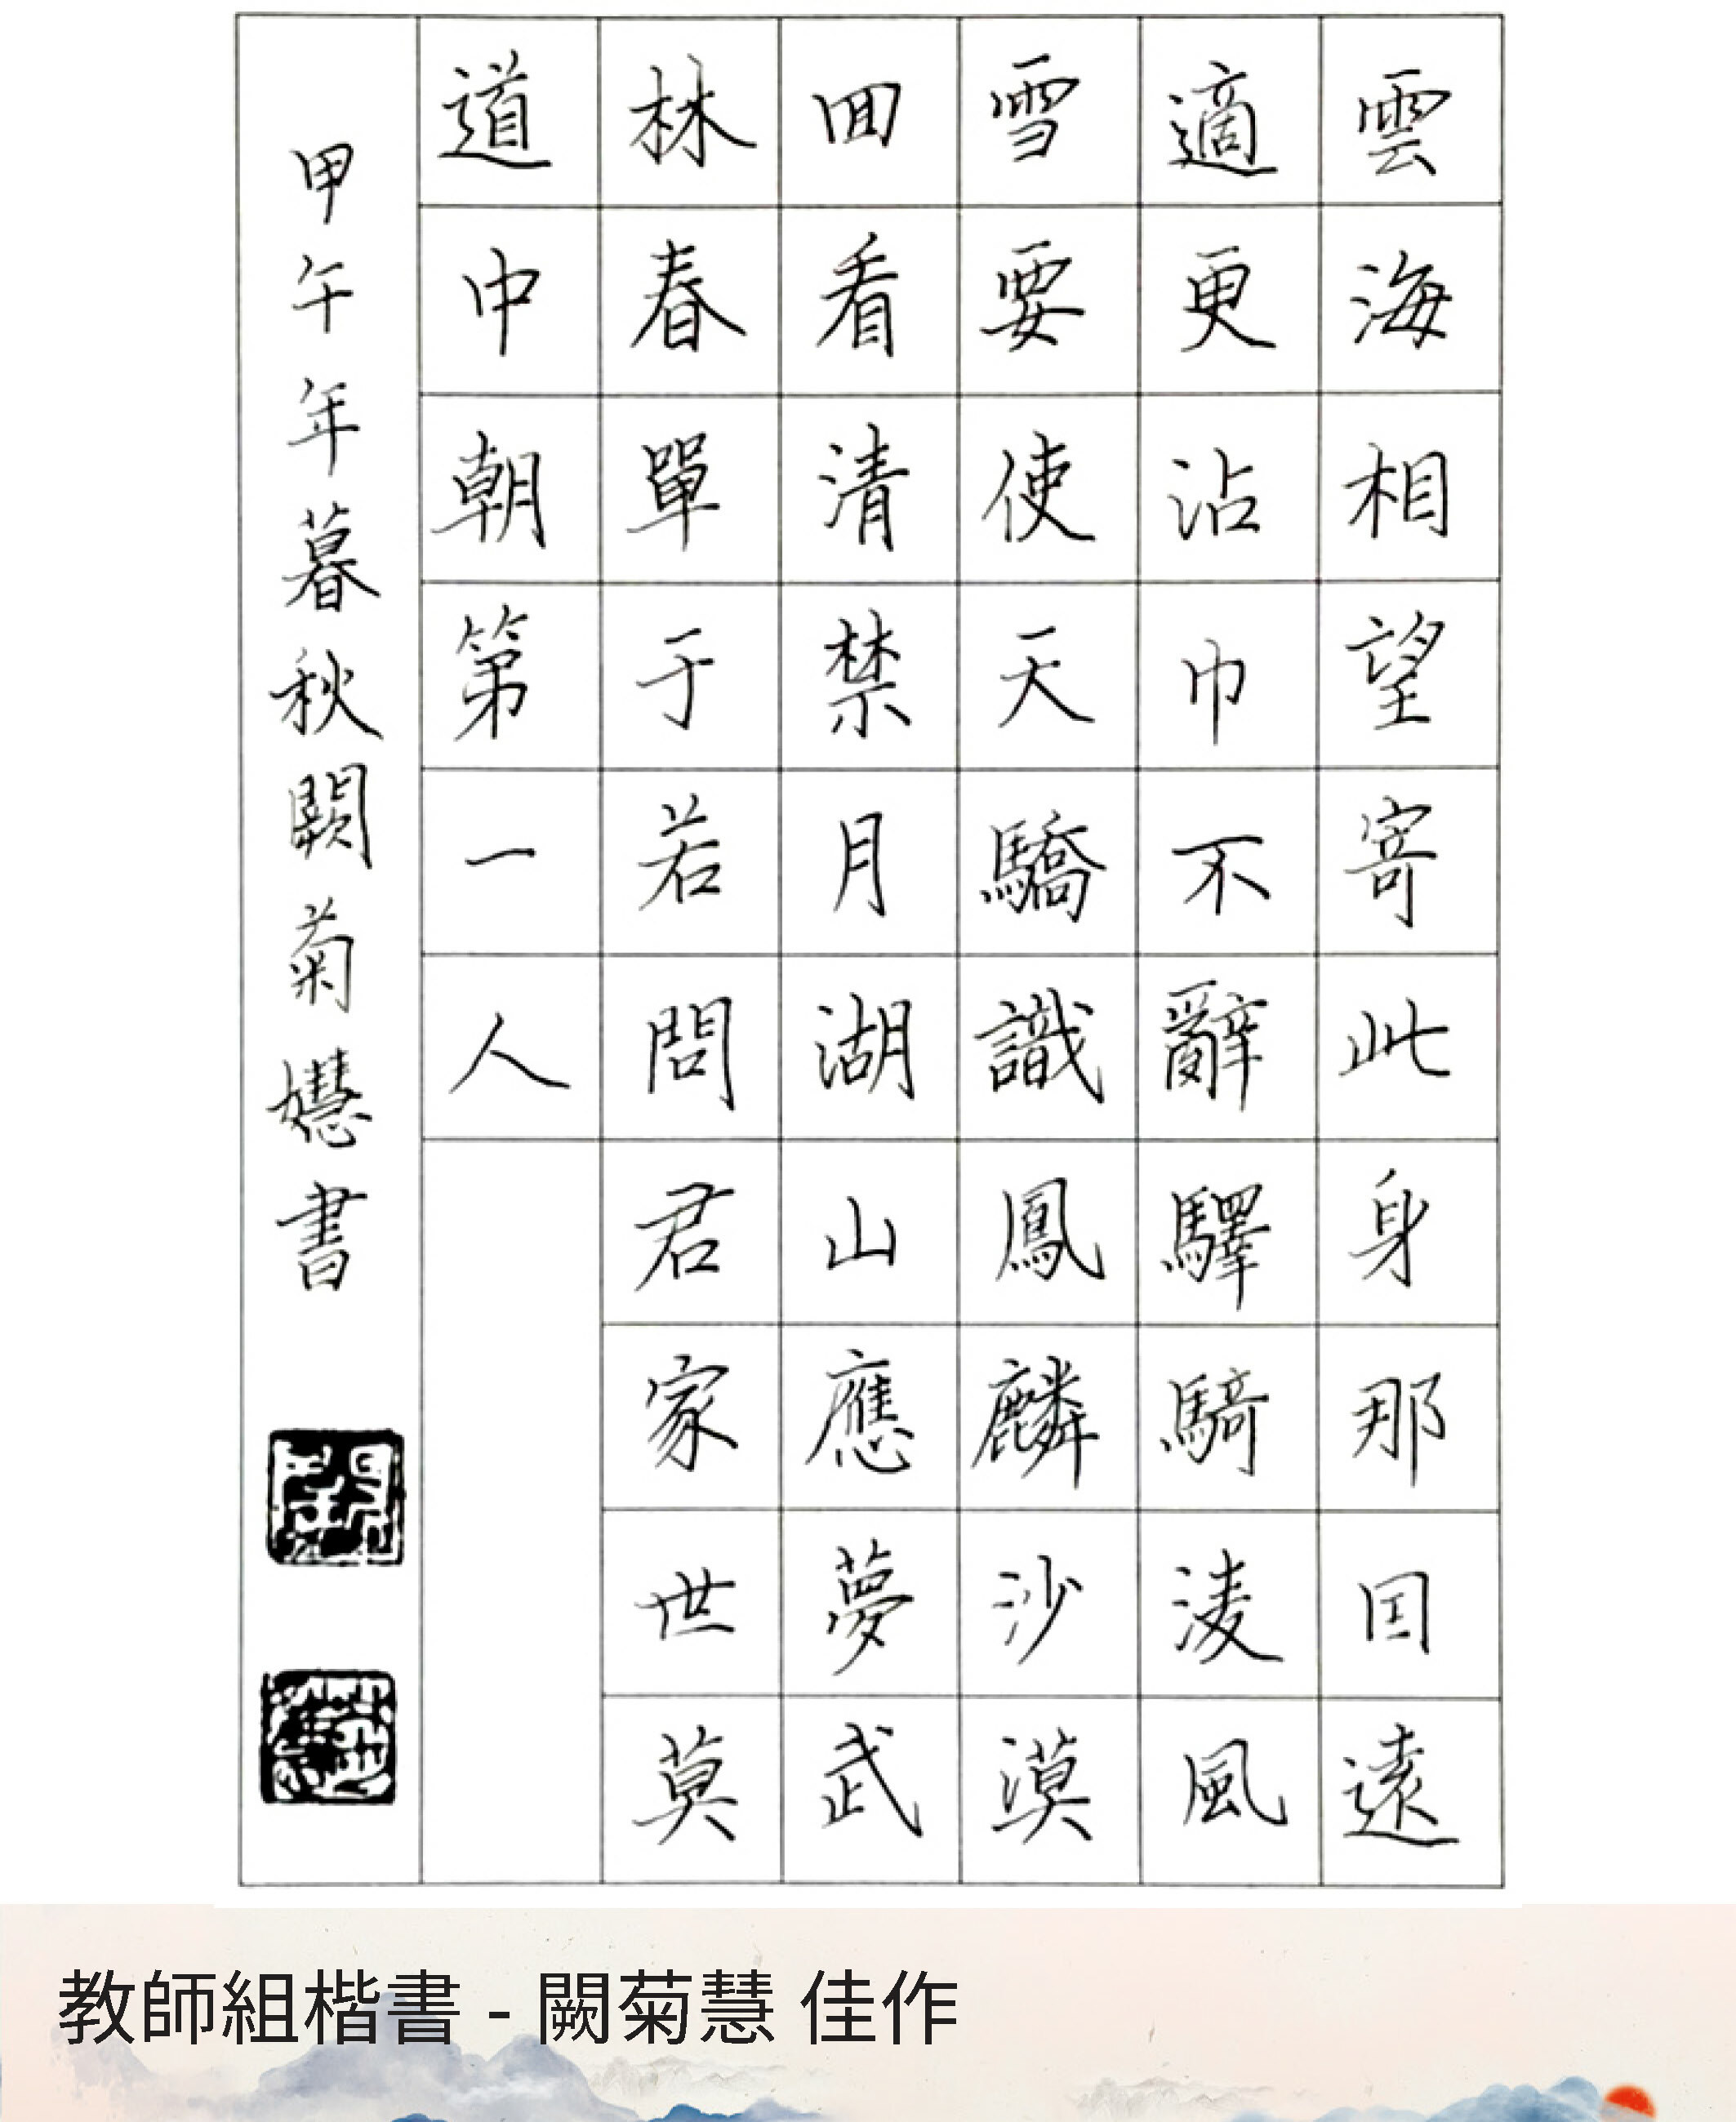 雲海相望寄此身那囙遠
適更沾巾不辭驛騎淩風
雪要使天驕識鳳麟沙漠
囬看清禁月湖山應夢武
林春單于若問君家世莫
道中朝第一人
甲午年暮秋闕菊慧書
教師組楷書 - 闕菊慧 佳作